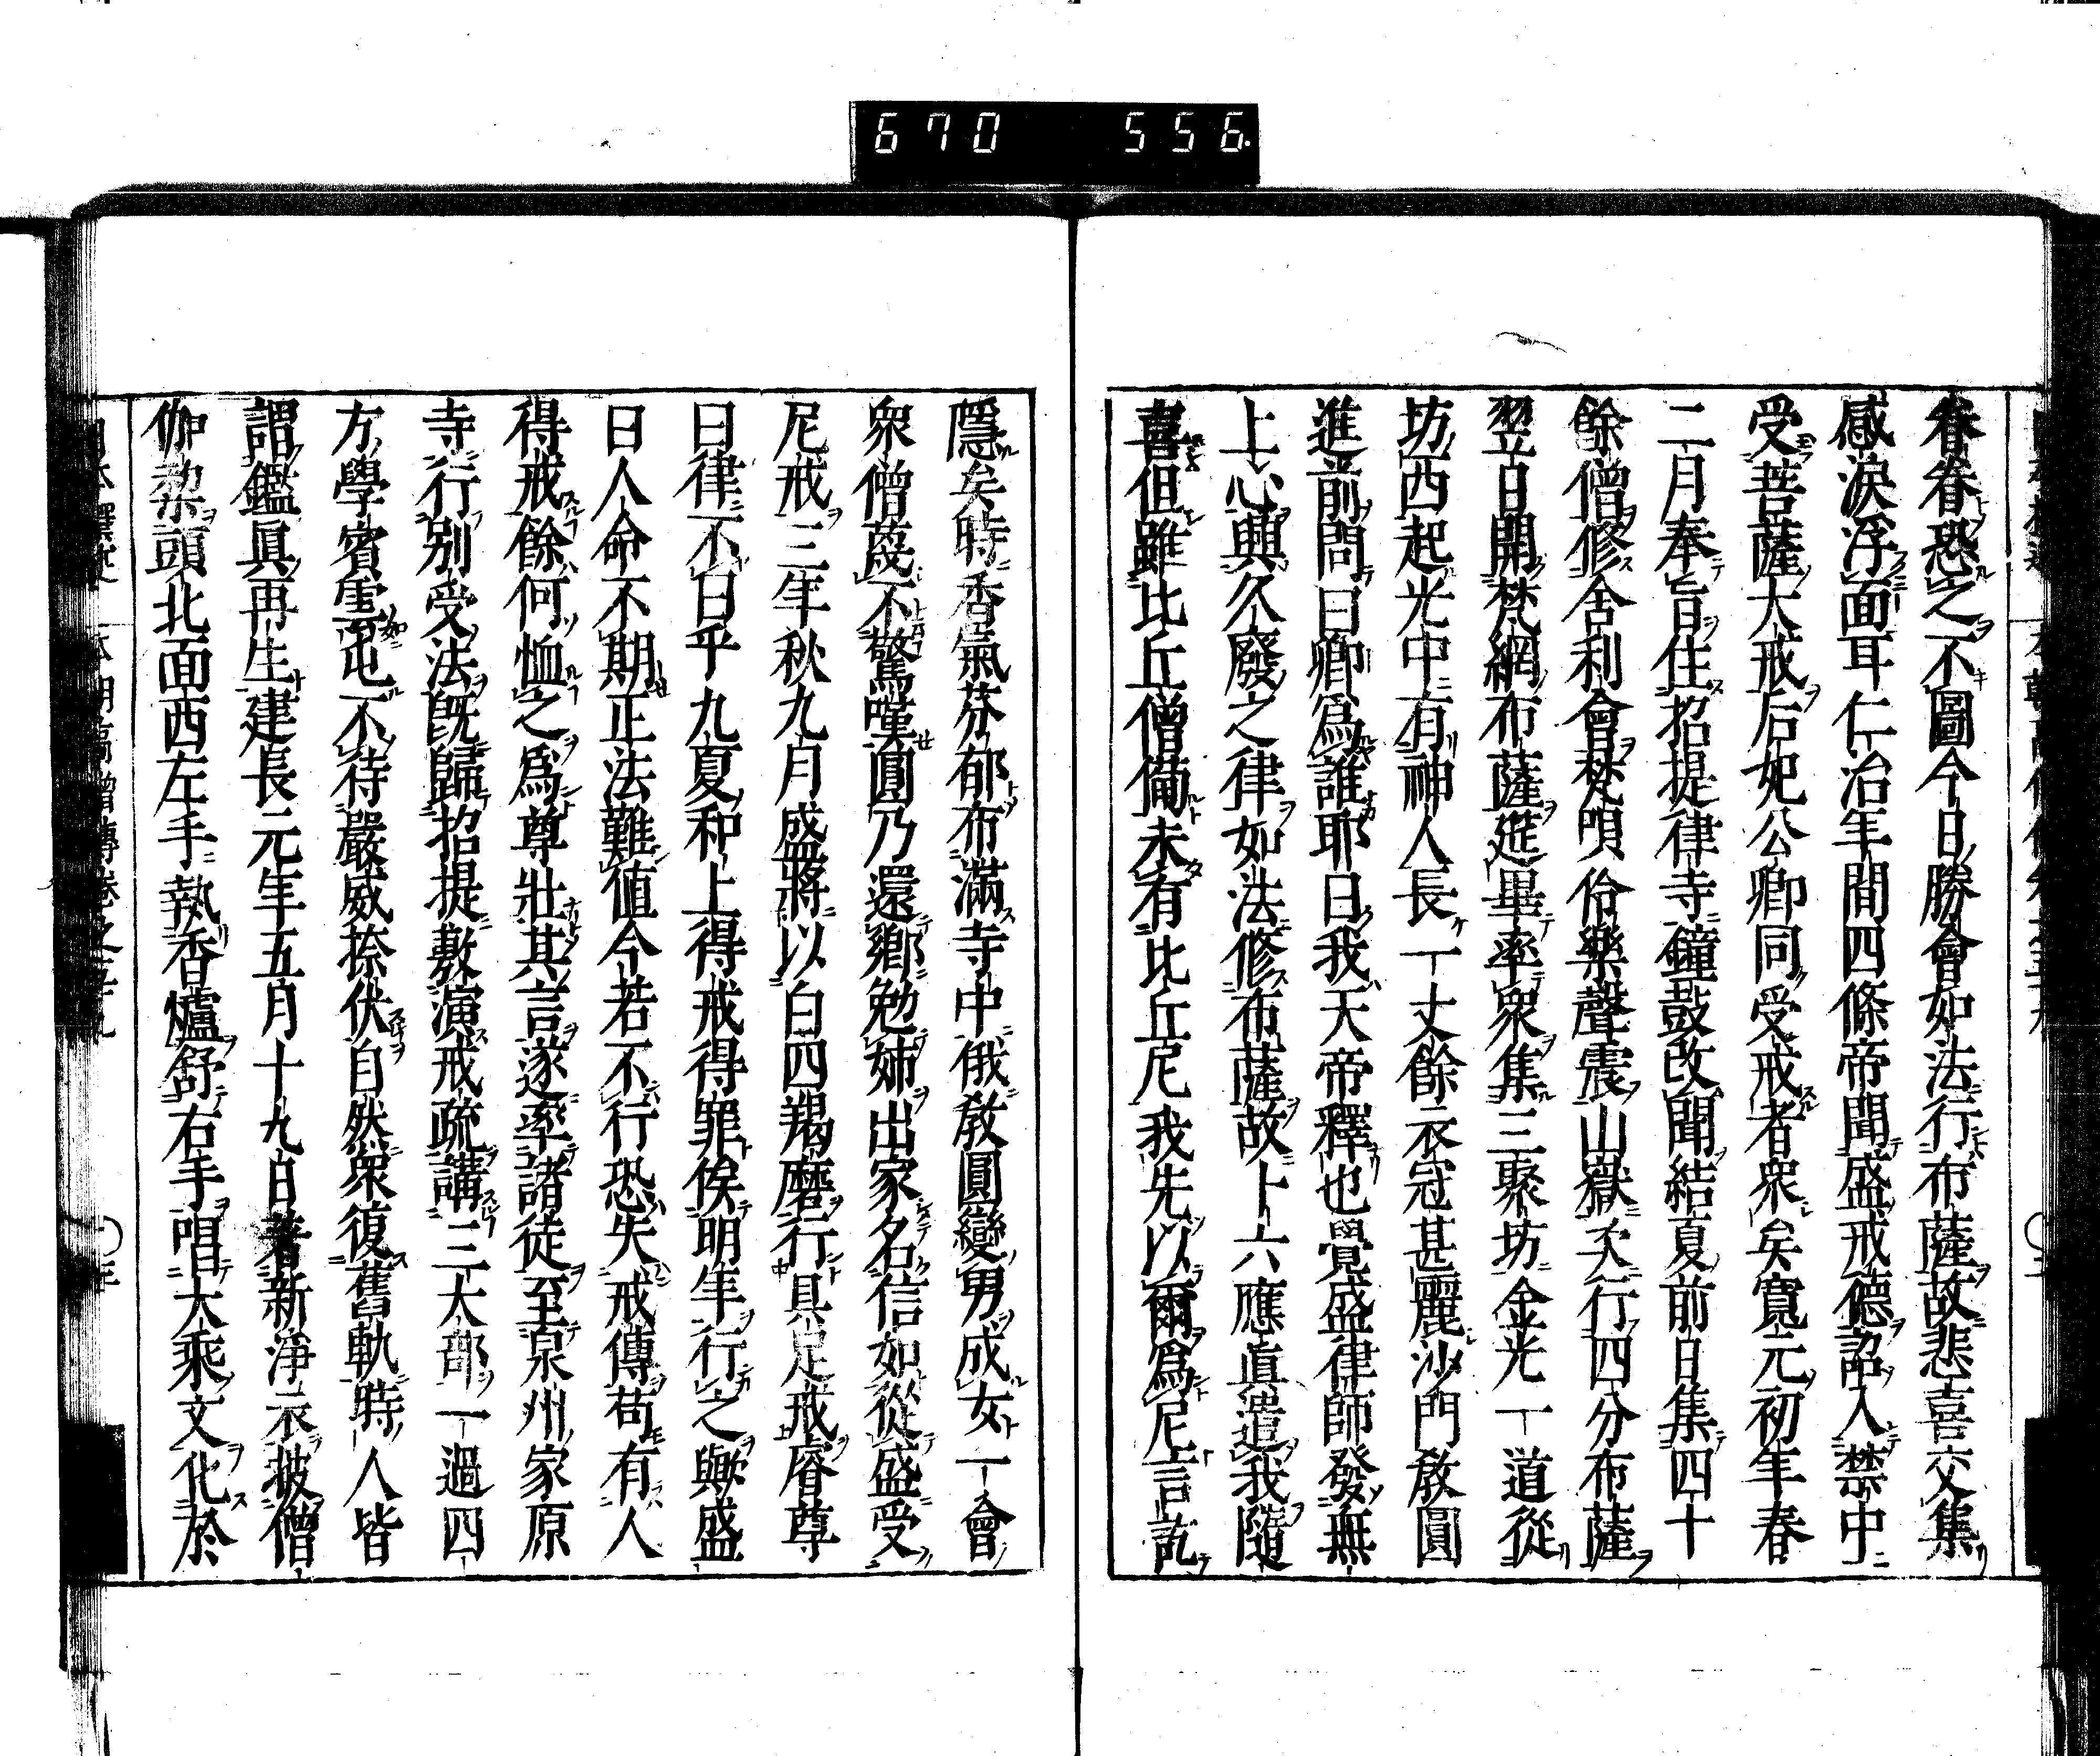 670 556.
眷眷恐之不圖今日勝會如法行布薩故悲喜交集
感淚浮面耳仁治年間四條帝聞盛戒德詔入禁中
受菩薩大戒后妃公卿同受戒者衆矣寬元初年春
二月奉旨住招提律寺鐘鼓改聞結夏前日集四十
餘僧修舍利會梵唄伶樂聲震山嶽次行四分布薩
翌日開梵網布薩莚畢率衆集三聚坊金光一道從
坊西起光中有神人長一丈餘衣冠甚麗沙門教圓
進前問曰卿爲誰耶曰我天帝釋也覺盛律師發無
上心興久廢之律如法修布薩故卜六應眞遣我隨
喜但雖比丘僧備未有比丘尼我先以爾爲尼言訖
隱矣時香氣芬郁布滿寺中俄教圓變男成女一會
衆僧蔑不驚嘆圓乃還鄉勉姊出家名信如從盛受
尼戒三年秋九月盛將以白四羯磨行具足戒睿尊
曰律不曰乎九夏和上得戒得罪俟明年行之歟盛
曰人命不期正法難値今若不行恐失戒傳苟有人
得戒餘何恤之爲尊壯其言遂率諸徒至泉州家原
寺行別受法既歸招提敷演戒疏講三大部一過四
方學賓雲屯不待嚴威捺伏自然衆復舊軌時人皆
謂鑑眞再生建長元年五月十九日著新淨衣披僧
伽梨頭北面西左手執香爐舒右手唱大乘文化於